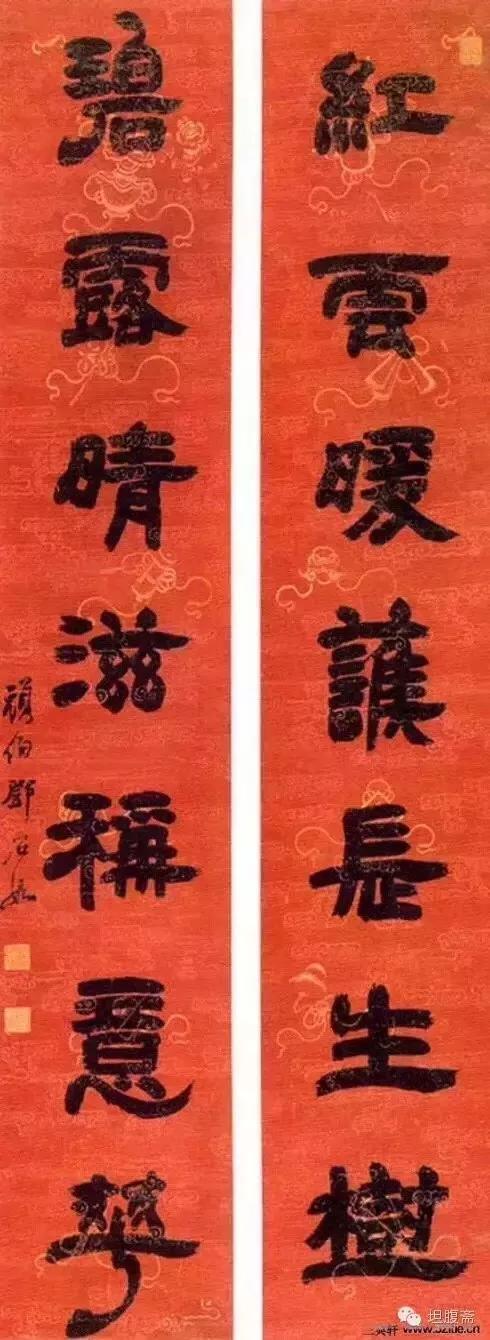 紅雲暖護長生樹
碧露晴滋稱意華
頑伯鄧石如
坦腹斋
www.52liie.cn